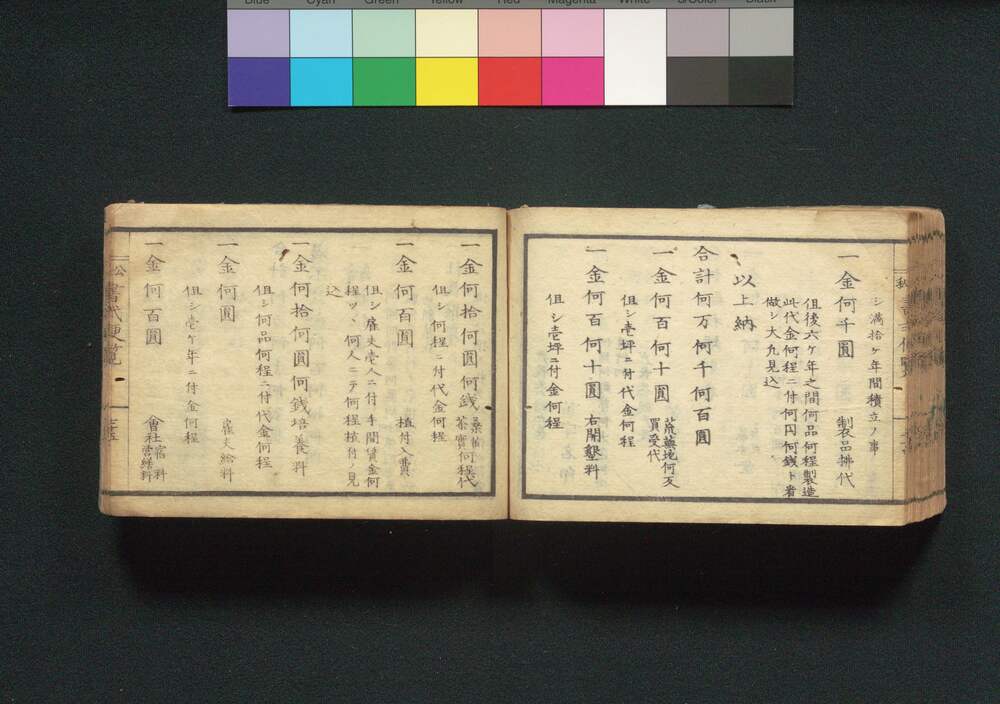 Blue Cyan Green Yellow Red Magenta White 3/Color Black
シ満拾ケ年間積立ノ事
一金何千圓 製品拂代
但後六ケ年之間何品何程製造
此代金何程ニ付何円何銭ト看
做シ大凡見込
以上納
合計何万何千何百圓
一金何百何十圓 荒蕪地何反
買受代
但シ壱坪ニ付代金何程
一金何百何十圓 右開墾料
但シ壱坪ニ付金何程
一金何拾何圓何銭 桑苗
茶實何程代
但シ何程ニ付代金何程
一金何百圓 植付入費
但シ雇夫壱人ニ付手間賃金何
程ツヽ何人ニテ何程植付ノ見
込
一金何拾何圓何銭培養料
但シ何品何程ニ付代金何程
一金何圓 雇夫給料
但シ壱ケ年ニ付金何程
一金何百圓 會社
營繕料
公 書式便覧